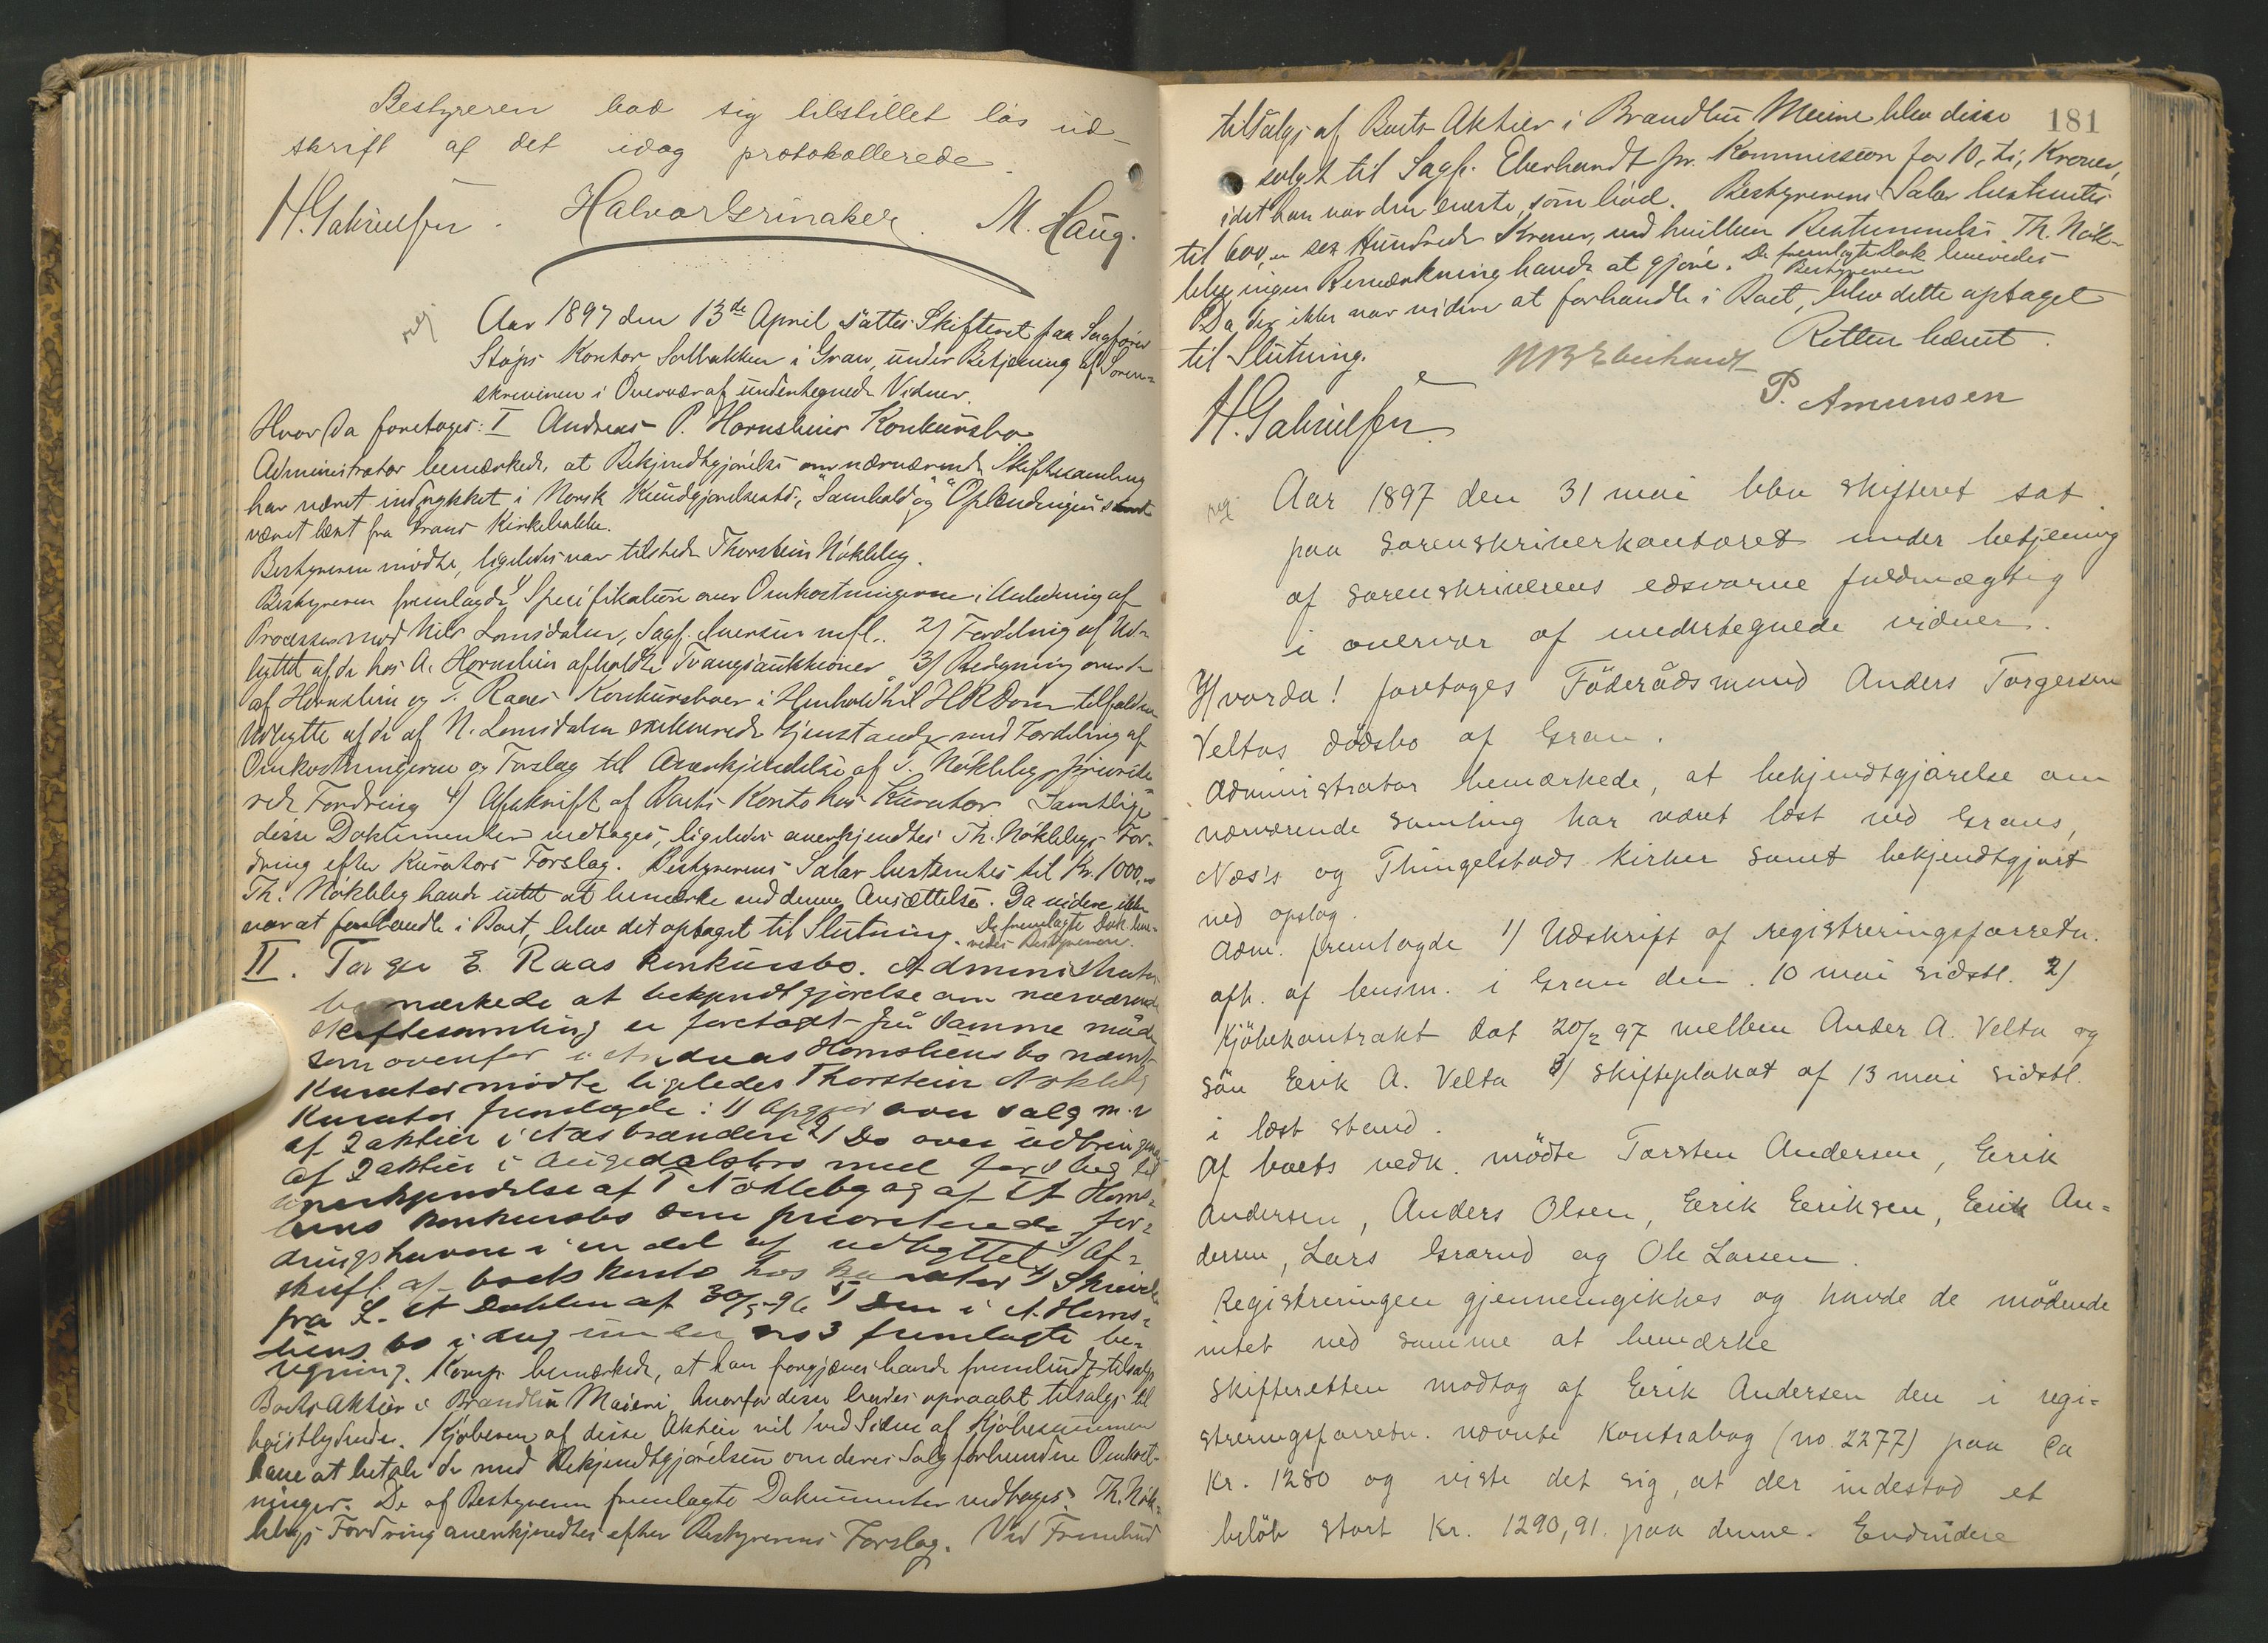 Bestyreren bad sig tilstillet løs ud-
skrift af det idag protokollerede.
H. Gabrielsen. Halvor Grinaker. M. Haug.
reg
Aar 1897 den 13de April sattes Skifteret paa Sagfører
Støps Kontor Solbakken i Gran, under Betjening af Soren-
skriveren i Overvær af undertegnede Vidner.
Hvor da foretoges: I Andreas P. Hornsliens Konkursbo
Administrator bemærkede, at Bekjendtgjørelse om nærværende Skiftesamling
har været indrykket i Norsk Kundgjørelsestid., "Samhold" og "Oplendingen" samt
været læst fra Grans Kirkebakke.
Bestyreren mødte, ligeledes var tilstede Thorstein Nøkleby.
Bestyreren fremlagde 1) Specifikation over Omkostningerne i Anledning af
Processen mod Nils Lomsdalen, Sagf. Iversen mfl. 2) Fordeling af Ud-
byttet af de hos A. Hornslien afholdte Tvangsauktioner 3) Beregning over de
af Hornslien og T. Raaes Konkursboer i Henhold til HRDom tilfaldne
Udbytte af de af N. Lomsdalen exekverede Gjenstande med Fordeling af
Omkostningerne og Forslag til Anerkjendelse af T. Nøklebys priorite-
rede Fordring 4) Afskrift af Boets Konto hos Kurator. Samtlige
disse Dokumenter vedtoges, ligeledes anerkjendtes Th. Nøklebys For-
dring efter Kurators Forslag. Bestyrerens Salær bestemtes til Kr. 1000,00
Th. Nøkleby havde intet at bemærke ved denne Ansættelse. Da videre ikke
var at forhandle i Boet, blev det optaget til Slutning. De fremlagte Dok. leve-
redes Bestyreren.
II. Torger E. Raas konkursbo. Administrator
bemærkede at bekjendtgjørelse om nærværende
skiftesamling er foretaget paa samme måde
som ovenfor i Andreas Hornsliens bo nævnt
Kurator mødte ligeledes Thorstein Nøkleby
Kurator fremlagde: 1) Opgjør over salg m.v
af 2 aktier i Næs brænderi 2) Do over udbringende
af 2 aktier i Augedalsbro med forslag til
anerkjendelse af T Nökleby og af A Horns-
liens konkursbo som prioriterede for-
dringshavere i en del af udbyttet 3) Af-
skrift af boets konto hos kurator 4) Skrivelse
fra L. A Dahlen af 30/5 96 5) Den i A. Horns-
liens bo i dag under no 3 fremlagte be-
regning. Komp. bemærkede, at han forgjæves havde frembudt tilsalgs
Boets Aktier i Brandbu Meieri, hvorfor disse burdes opraabt tilsalgs til
høistbydende. Kjøberen af disse Aktier vil ved Siden af Kjøbesummen
have at betale de med Bekjendtgjørelsen om deres Salg forbundne Omkost-
ninger. De af Bestyreren fremlagte Dokumenter vedtoges. Th. Nøk-
lebys Fordring anerkjendtes efter Bestyrerens Forslag. Ved Frembud
181
tilsalgs af Boets Aktier i Brandbu Meieri blev disse
solgt til Sagf. Eberhardt pr. Kommission for 10, ti, Kroner,
idet han var den eneste, som bød. Bestyrerens Salær bestemtes
til 600,00 sex Hundrede Kroner, ved hvilken Bestemmelse Th. Nøk-
leby ingen Bemærkning havde at gjøre. De fremlagte Dok leveredes
Bestyreren
Da der ikke var videre at forhandle i Boet, blev dette optaget
til Slutning. Retten hævet.
H. Gabrielsen. Eberhardt P. Amunsen
reg
Aar 1897 den 31 mai blev skifteret sat
paa sorenskriverkontoret under betjening
af sorenskriverens edsvorne fuldmægtig
i overvær af undertegnede vidner.
Hvorda! foretoges Föderådsmand Anders Torgersen
Veltas dödsbo af Gran.
Administrator bemærkede, at bekjendtgjørelse om
nærværende samling har været læst ved Grans,
Næs's og Thingelstads kirker samt bekjendtgjort
ved opslag.
Adm. fremlagde 1) Udskrift af registreringsforretn.
afh. af lensm. i Gran den 10 mai sidstl. 2)
Kjöbekontrakt dat 20/2 97 mellem Ander A. Velta og
sön Eerik A. Velta 3) skifteplakat af 13 mai sidstl.
i læst stand.
Af boets vedk. mödte Torsten Andersen, Eerik
Andersen, Anders Olsen, Eerik Eeriksen, Eerik An-
dersen, Lars Grærud og Ole Larsen.
Registreringen gjennemgikkes og havde de mödende
intet ved samme at bemærke
Skifteretten modtog af Eerik Andersen den i regi-
streringsforretn. nævnte Kontrabog (no. 2277) paa Ca
Kr. 1280 og viste det sig, at der indestod et
belöb stort Kr. 1290,91. paa denne. Endvidere